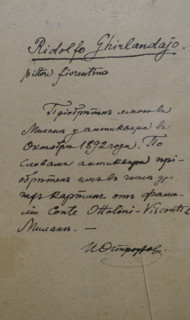 Ridolfo Ghirlandajo.
pittore fiorentino
Пріобрѣтенъ мною въ
Миланѣ у антиквара въ
Октябрѣ 1892 года. По
словамъ антиквара прі-
обрѣтенъ имъ въ числѣ
картинъ отъ фами-
ліи Conte Ottolini-Visconti въ
Миланѣ. —
ИОстроуховъ